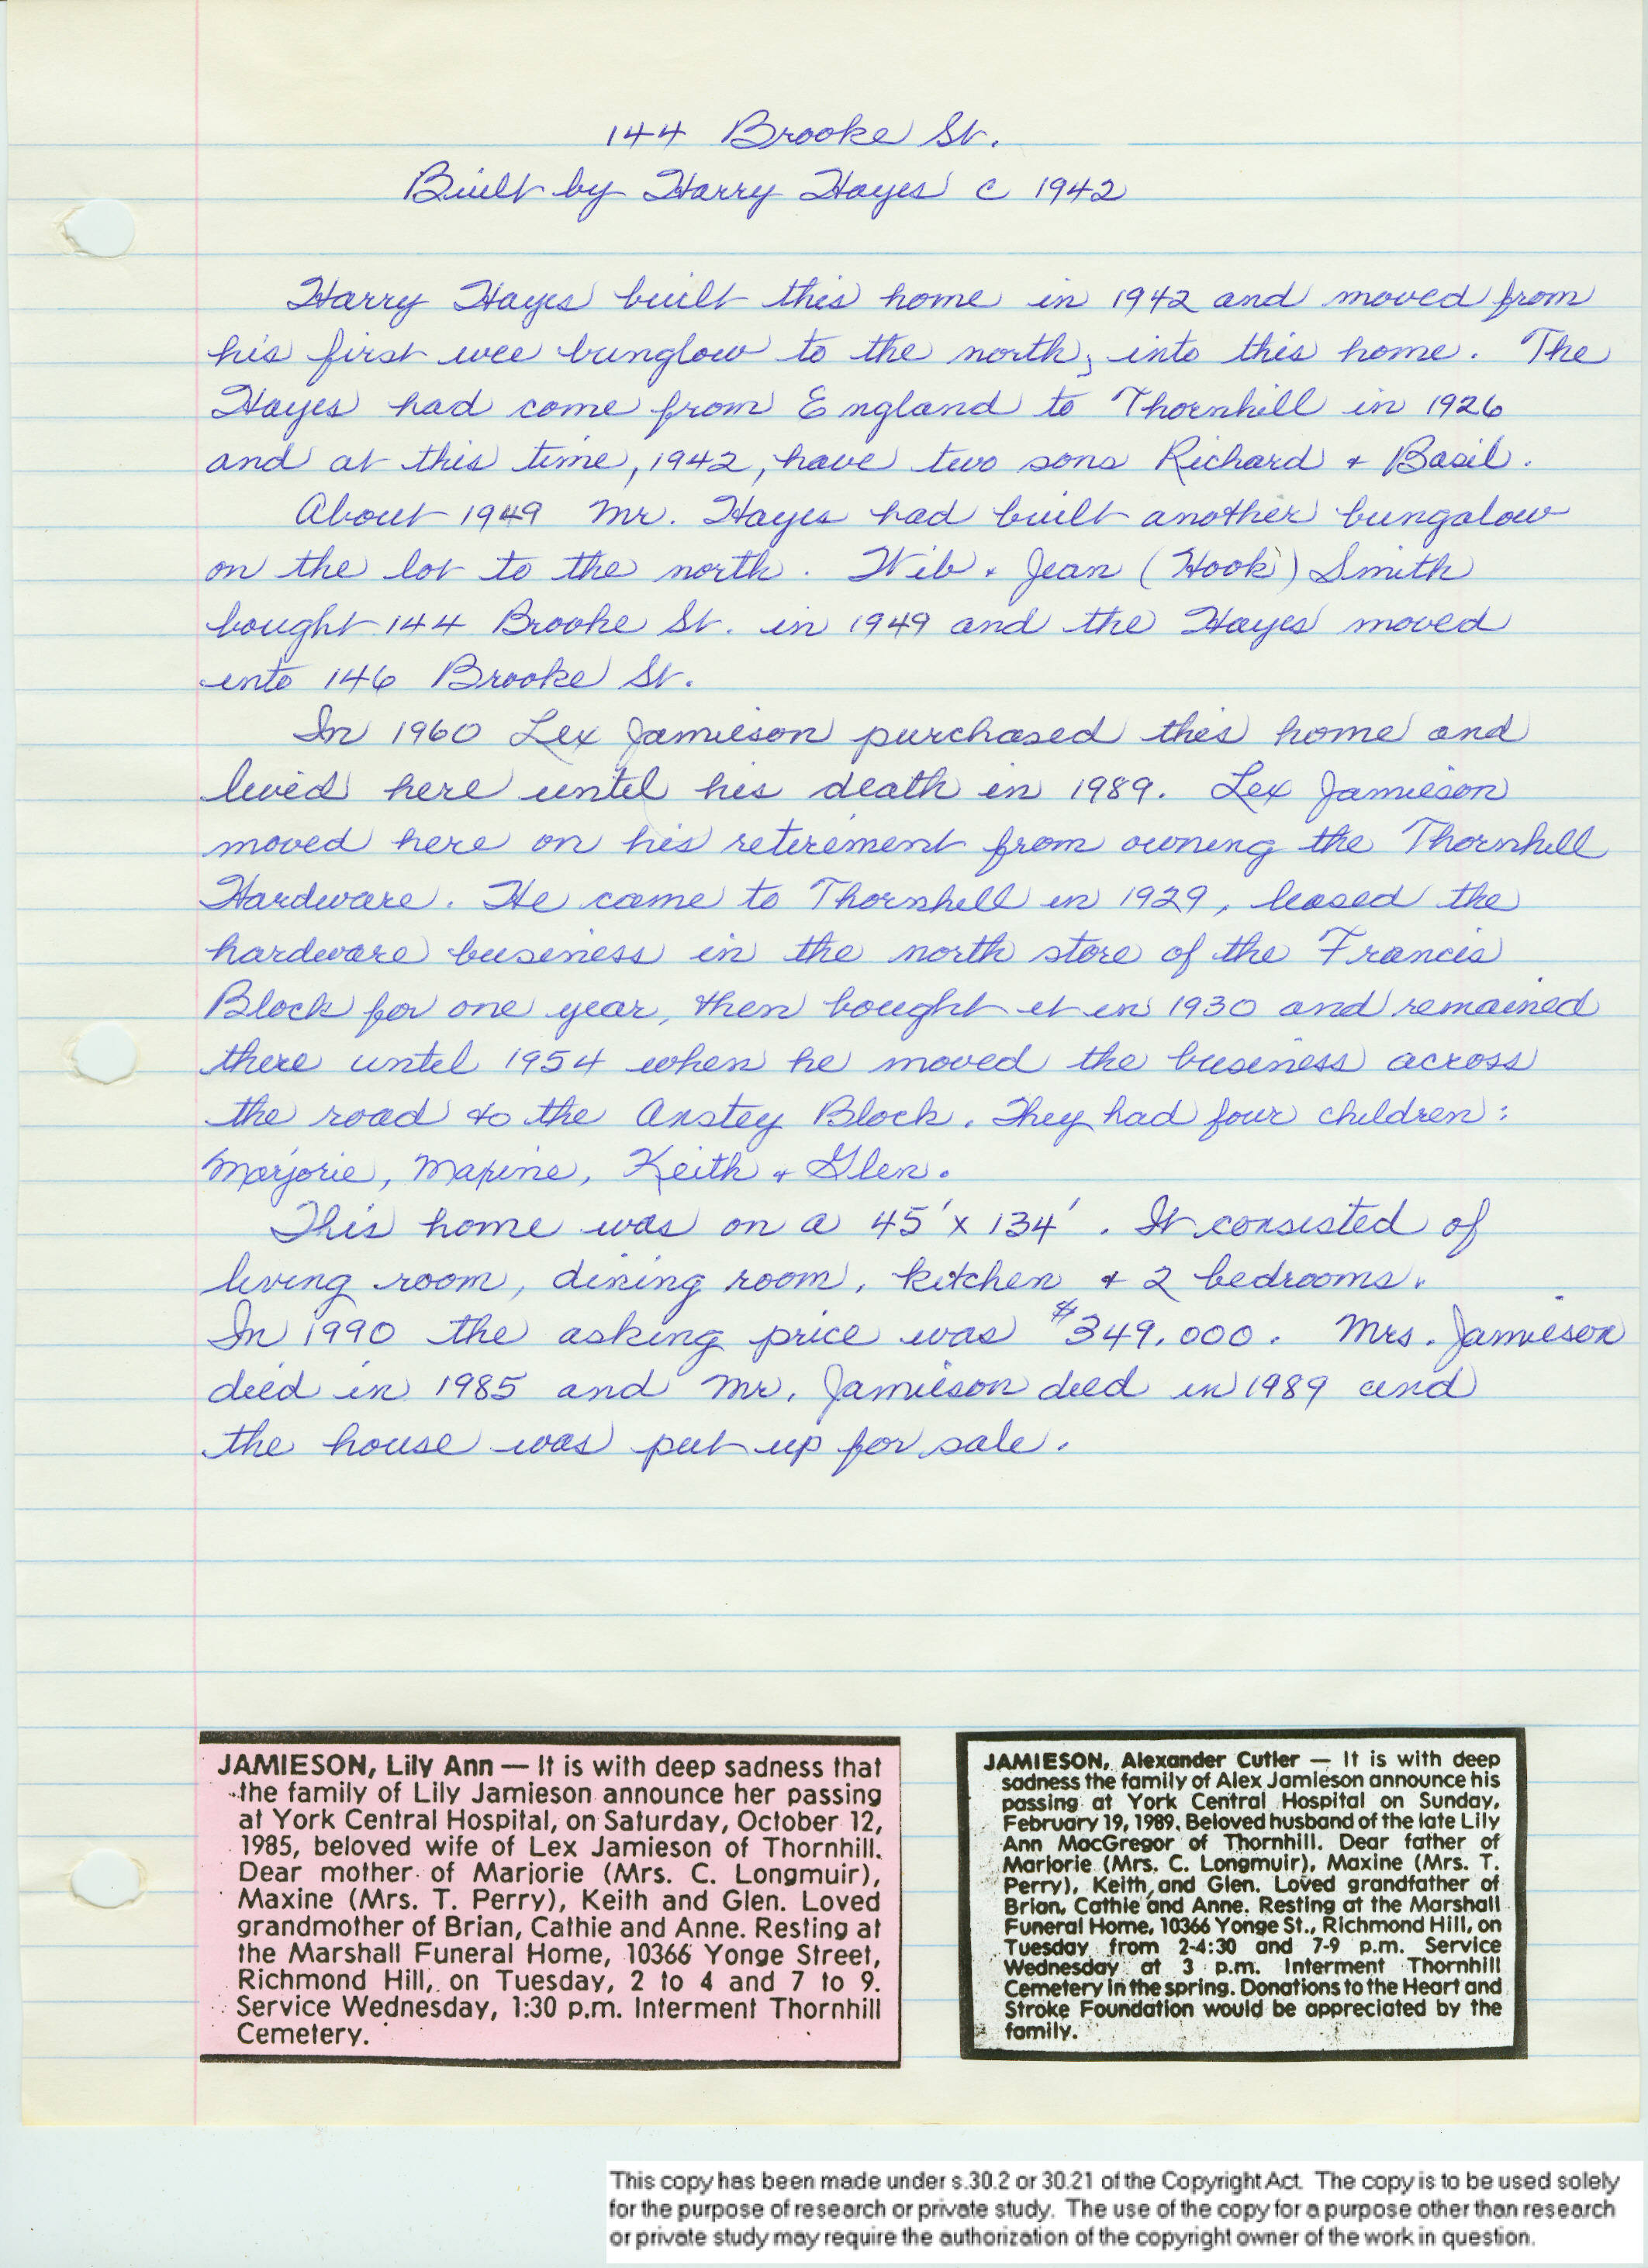 144 Brooke St.
Built by Harry Hayes c 1942
Harry Hayes built this home in 1942 and moved from
his first wee bunglow to the north, into this home. The
Hayes had come from England to Thornhill in 1926
and at this time, 1942, have two sons Richard + Basil.
About 1949 Mr. Hayes had built another bungalow
on the lot to the north. Wib + Jean (Hook) Smith
bought 144 Brooke St. in 1949 and the Hayes moved
into 146 Brooke St.
In 1960 Lex Jamieson purchased this home and
lived here until his death in 1989. Lex Jamieson
moved here on his retirement from owning the Thornhill
Hardware. He came to Thornhill in 1929, leased the
hardware business in the north store of the Francis
Block for one year, then bought it in 1930 and remained
there until 1954 when he moved the business across
the road to the Anstey Block. They had four children:
Marjorie, Maxine, Keith + Glen.
This home was on a 45' x 134'. It consisted of
living room, dining room, kitchen + 2 bedrooms.
In 1990 the asking price was $349,000. Mrs. Jamieson
died in 1985 and Mr. Jamieson died in 1989 and
the house was put up for sale.
JAMIESON, Lily Ann — It is with deep sadness that
the family of Lily Jamieson announce her passing
at York Central Hospital, on Saturday, October 12,
1985, beloved wife of Lex Jamieson of Thornhill.
Dear mother of Marjorie (Mrs. C. Longmuir),
Maxine (Mrs. T. Perry), Keith and Glen. Loved
grandmother of Brian, Cathie and Anne. Resting at
the Marshall Funeral Home, 10366 Yonge Street,
Richmond Hill, on Tuesday, 2 to 4 and 7 to 9.
Service Wednesday, 1:30 p.m. Interment Thornhill
Cemetery.
JAMIESON, Alexander Cutler — It is with deep
sadness the family of Alex Jamieson announce his
passing at York Central Hospital on Sunday,
February 19, 1989. Beloved husband of the late Lily
Ann MacGregor of Thornhill. Dear father of
Marjorie (Mrs. C. Longmuir), Maxine (Mrs. T.
Perry), Keith and Glen. Loved grandfather of
Brian, Cathie and Anne. Resting at the Marshall
Funeral Home, 10366 Yonge St., Richmond Hill, on
Tuesday from 2-4:30 and 7-9 p.m. Service
Wednesday at 3 p.m. Interment Thornhill
Cemetery in the spring. Donations to the Heart and
Stroke Foundation would be appreciated by the
family.
This copy has been made under s.30.2 or 30.21 of the Copyright Act. The copy is to be used solely
for the purpose of research or private study. The use of the copy for a purpose other than research
or private study may require the authorization of the copyright owner of the work in question.